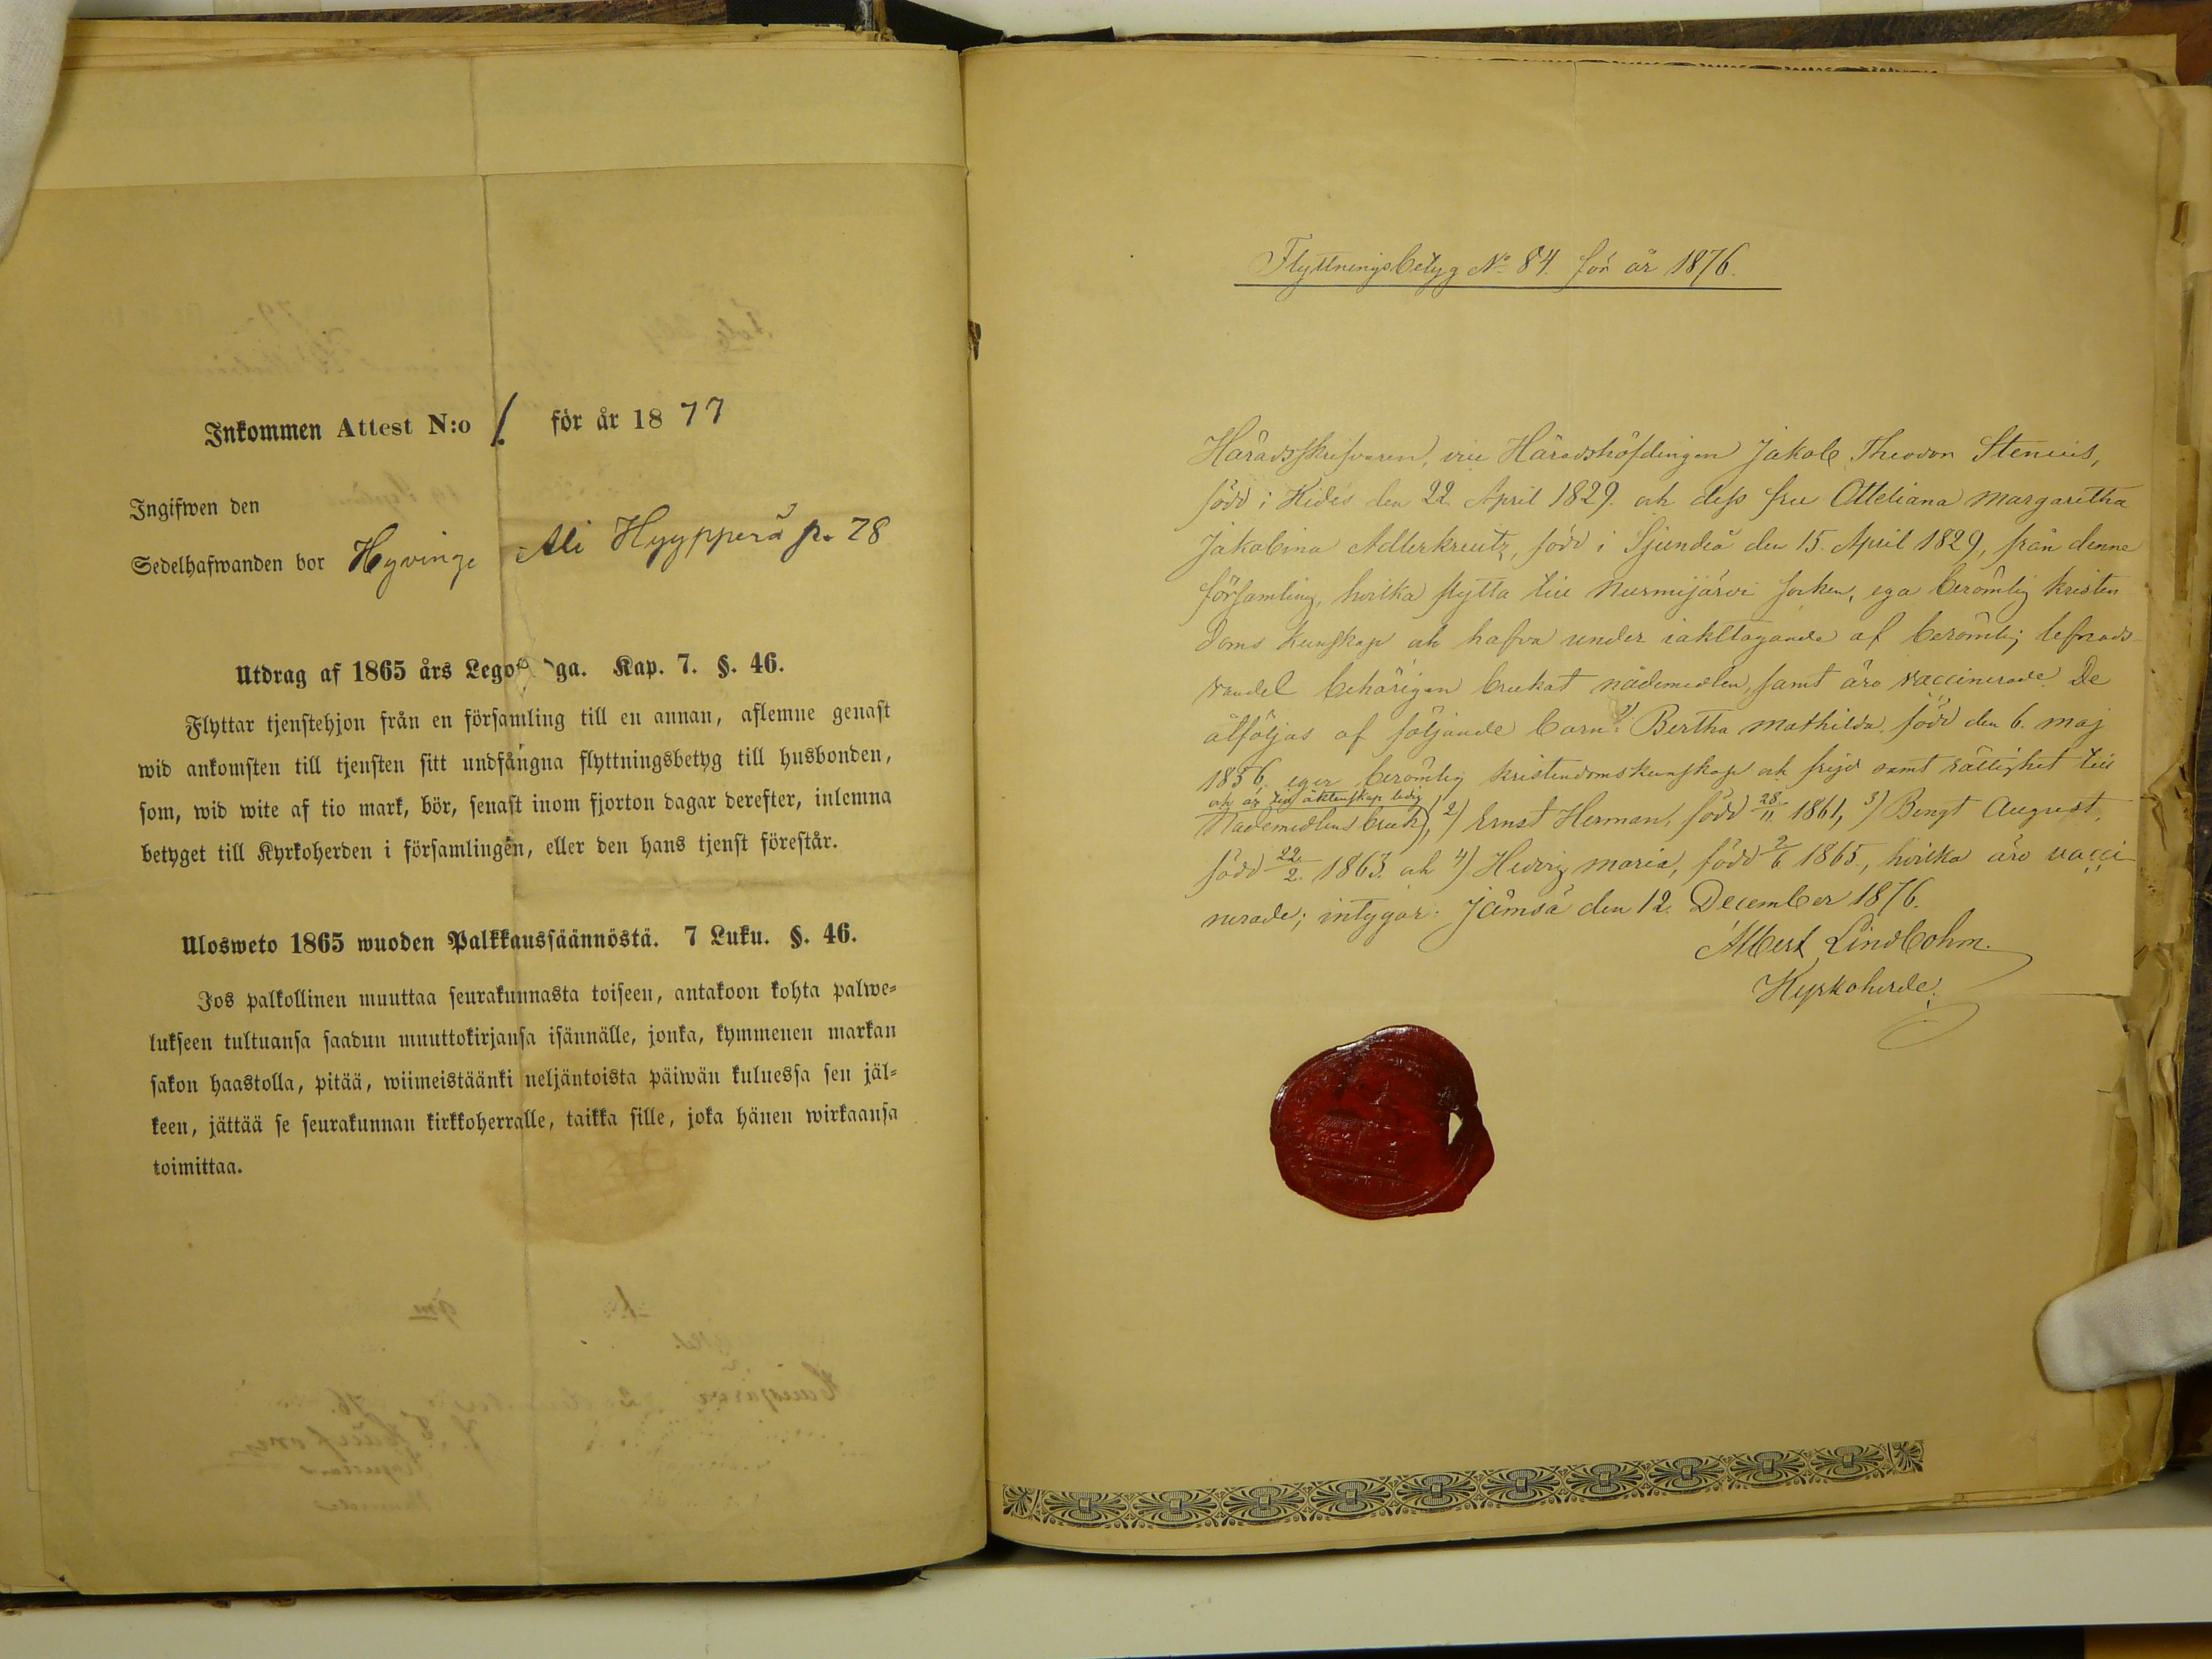 Inkommen Attest N:o 1. för år 1877
Ingifwen den
Sedelhafwanden bor Hyvinge Ali Hyyppärä p. 28
Utdrag af 1865 års Lego ga. Kap. 7. §. 46.
Flyttar tjenstehjon från en församling till en annan, aflemne genast
wid ankomsten till tjensten sitt undfångna flyttningsbetyg till husbonden,
som, wid wite af tio mark, bör, senast inom fjorton dagar derefter, inlemna
betyget till Kyrkoherden i församlingen, eller den hans tjenst förestår.
Ulosweto 1865 wuoden Palkkaussäännöstä. 7 Luku. §. 46.
Jos palkollinen muuttaa seurakunnasta toiseen, antakoon kohta palwe-
lukseen tultuansa saadun muuttokirjansa isännälle, jonka, kymmenen markan
sakon haastolla, pitää, wiimeistäänki neljäntoista päiwän kuluessa sen jäl-
keen, jättää se seurakunnan kirkkoherralle, taikka sille, joka hänen wirkaansa
toimittaa.
Flyttningsbetyg No 84. för år 1876.
Häradsskrifvaren, vice Häradshöfdingen Jakob Theodor Stenius,
född i Kides den 22 April 1829. och dess fru Otteliana Margaretha
Jakobina Adlerkreutz, född i Sjundeå den 15. April 1829, från denne
församling, hvilka flytta till Nurmijärvi socken, ega berömlig kristen
doms kunskap och hafva under iakttagande af berömlig lefnads-
vandel behörigen brukat nådemedlen, samt äro vaccinerade. De
åtföljas af följande barn: 1) Bertha Mathilda, född den 6. Maj
1856, eger berömlig kristendomskunskap och frejd samt rättighet till
och är till äktenskap ledig
Nådemedlens bruk), 2) Ernst Herman, född 28/11. 1861, 3) Bengt August,
född 22./2. 1863. och 4) Hedvig Maria, född 2/6 1865., hvilka äro vacci
nerade; intygar. Jämsä den 12. December 1876.
Albert Lindbohm.
Kyrkoherde.